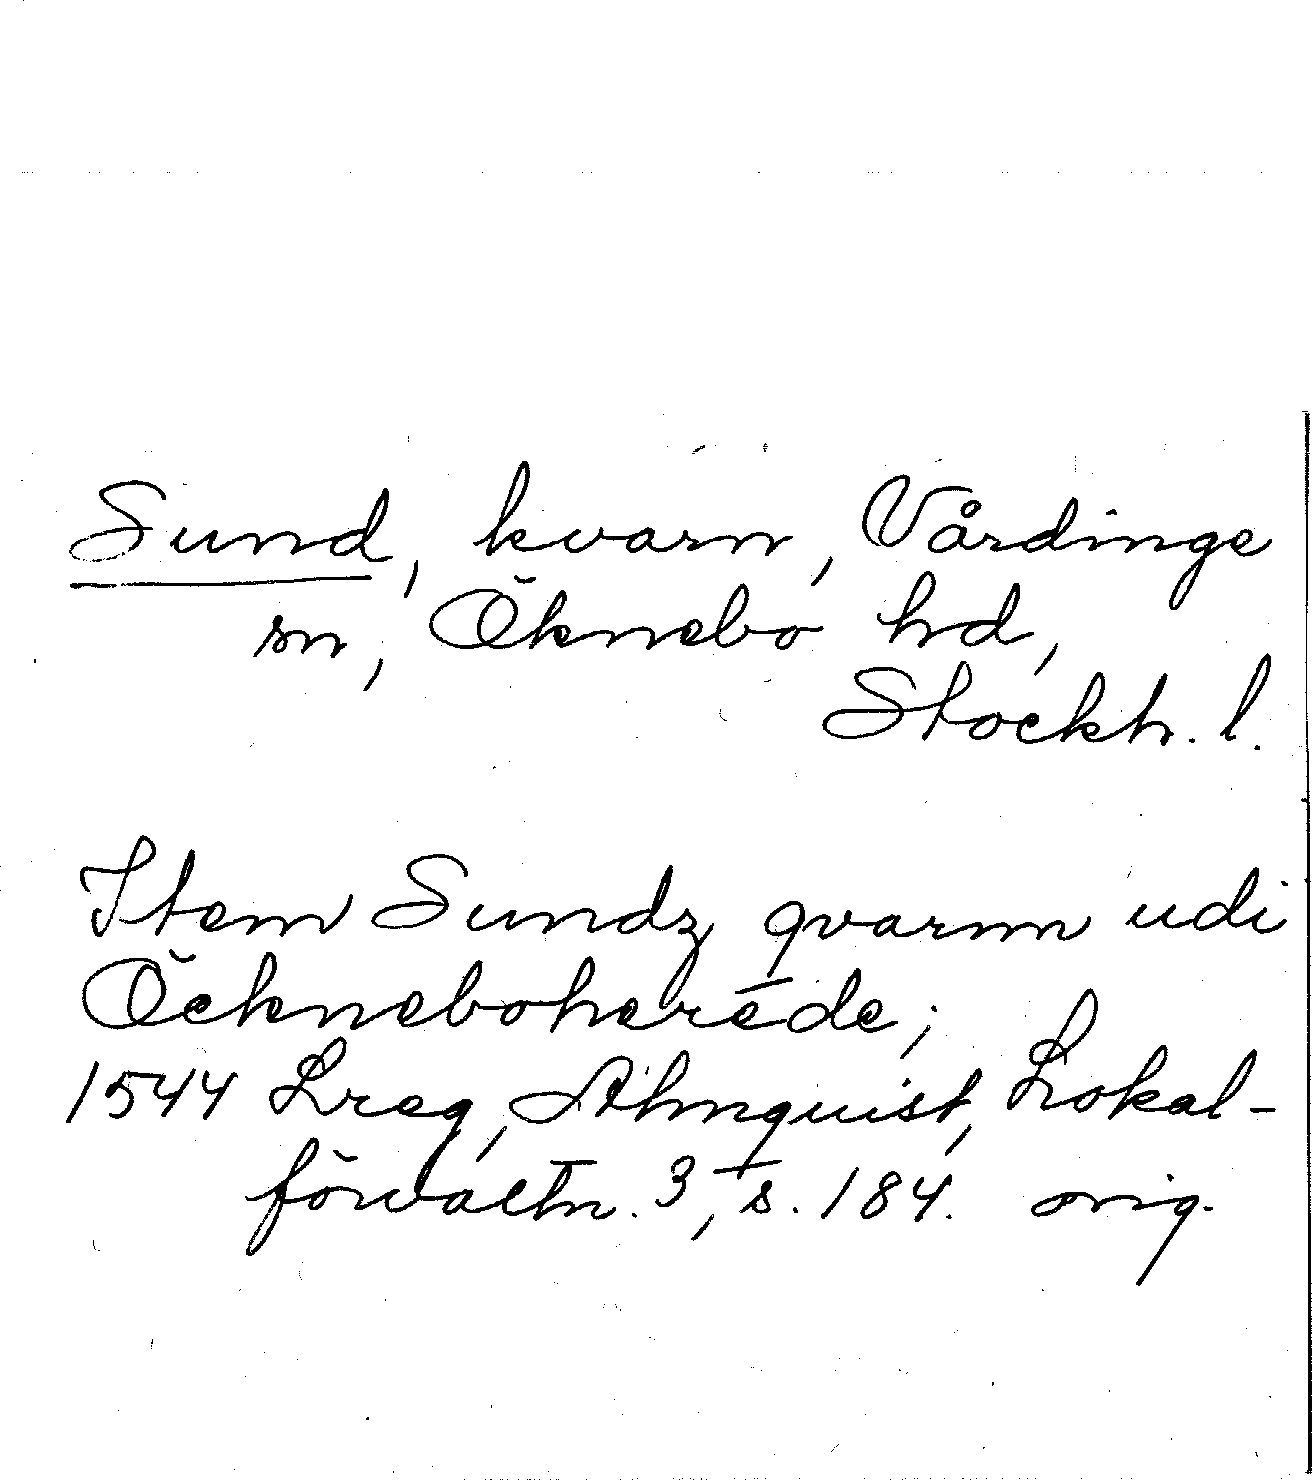 Sund, kvarn, Vårdinge
sn, Öknebo hd,
Stockh. l.
Item Sundz qvarnn udi
Öckneboherēde;
1544 Lreg, Almquist, Lokal-
förvaltn. 3, s. 184. orig.